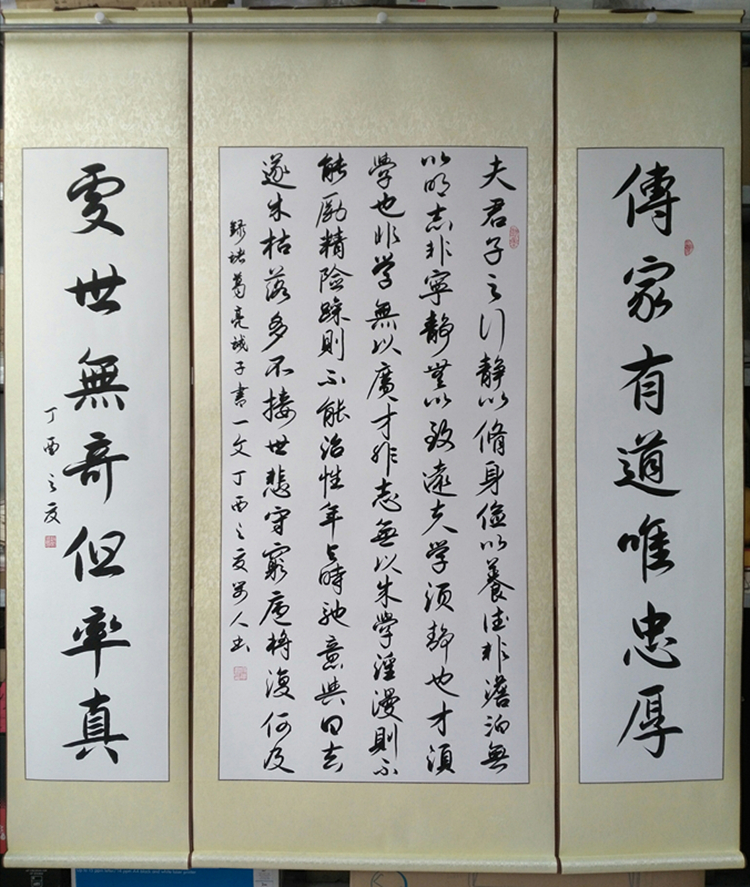 傳家有道唯忠厚
夫君子之行静以脩身儉以養德非澹泊無
以明志非寧静無以致遠夫学須静也才須
學也非学無以廣才非志無以成學淫漫則不
能勵精險躁則不能治性年與時馳意與日去
遂成枯落多不接世悲守窮廬將復何及
録諸葛亮誡子書一文丁酉之夏人书
處世無奇但率真
丁酉之夏